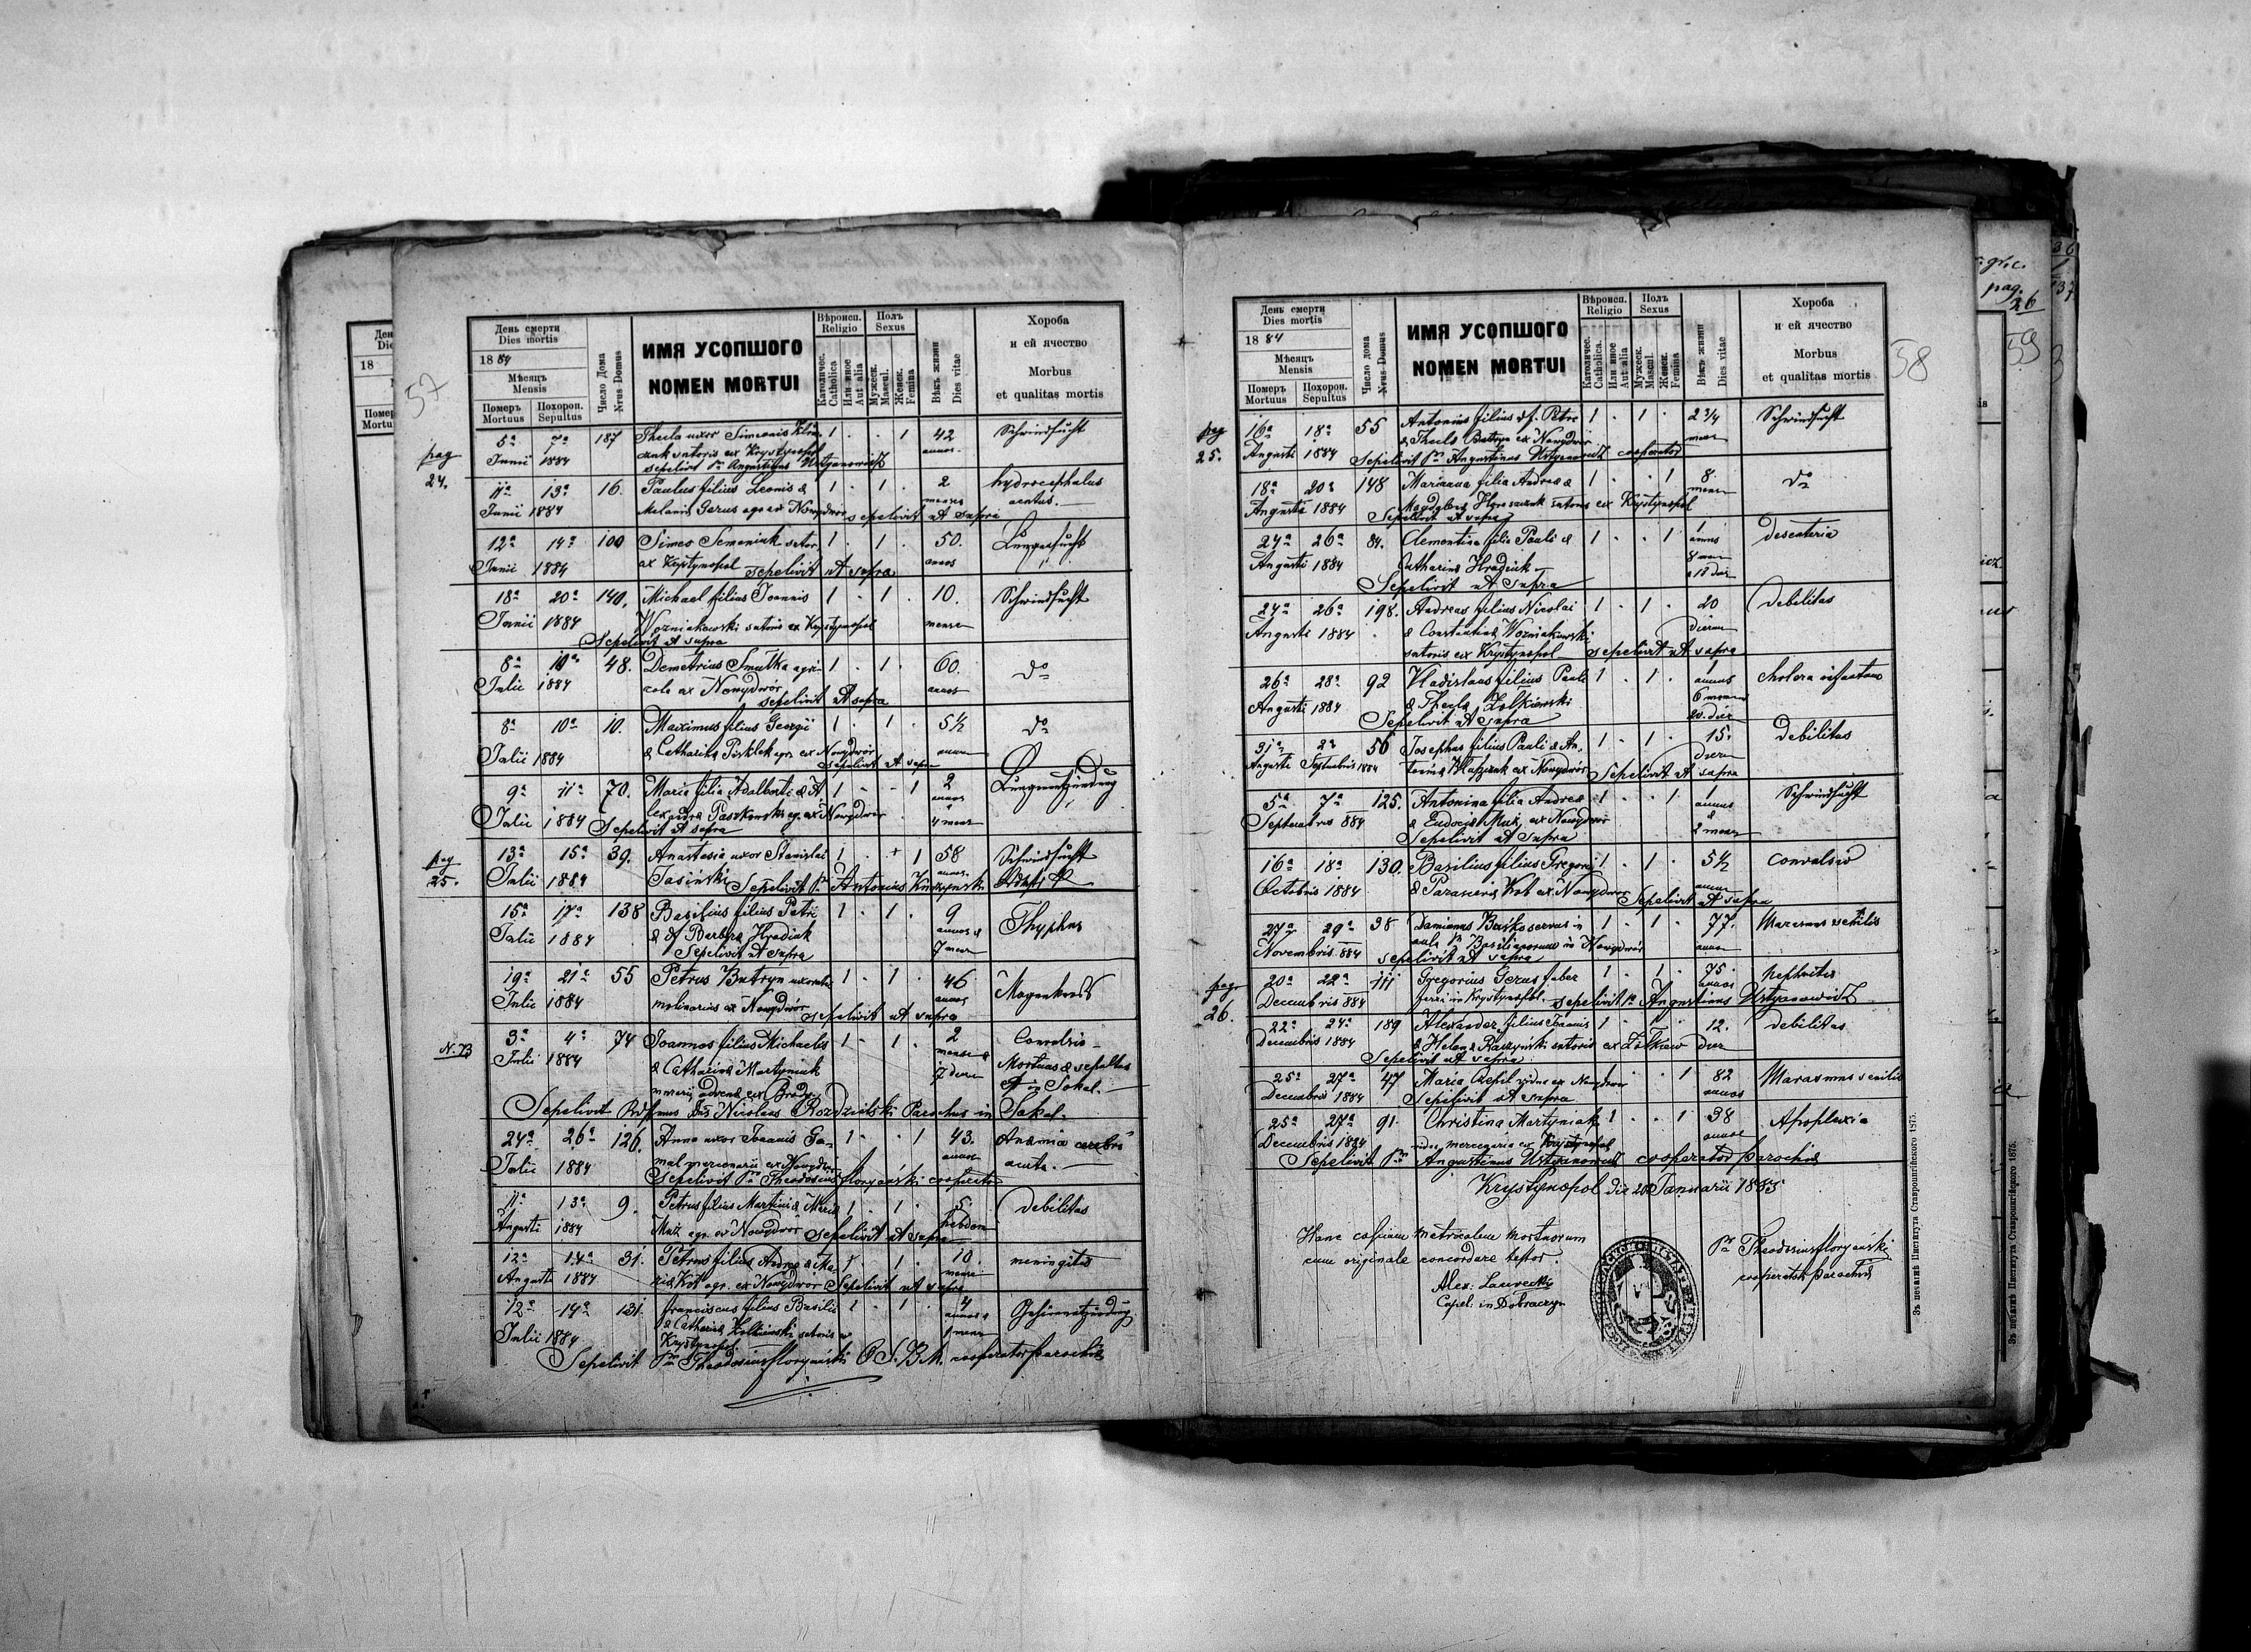 57
День смерти
Dies mortis
1884
Мѣсяць
Mensis
Померъ
Mortuus
Похорон.
Sepultus
Число Дома
Nrus Domus
ИМЯ УСОПШОГО
NOMEN MORTUI
Вѣроисп.
Religio
Католичес.
Catholica
Или иное
Aut alia
Полъ
Sexus
Мужеск.
Mascul.
Женск.
Femina
Вѣкъ жизни
Dies vitae
Хороба
и ей ячество
Morbus
et qualitas mortis
pag 24.
5a 7a 187 Thecla uxor Simeonis 1 . . 1 42 Schwindsucht
Junii 1884 satoris ex Krystynopol annos
sepelivit Pr Augustinus Ustyanowicz
11a 13a 16. Paulus filius Leonis & 1 . 1 . 2 hydrocephalus
Junii 1884 Melaniæ Gerus agr ex Nowydwor sepelivit ut supra menses acutus.
12a 14a 100 Simeo Semeniuk sator 1 . 1 . 50. Lungensucht
Junii 1884 ex Krystynopol sepelivit ut supra annos
18a 20a 140. Michael filius Joannis 1 . 1 . 10. Schwindsucht
Junii 1884 Wozniakowski satoris ex Krystynopol mense
Sepelivit ut supra
8a 10a 48. Demetrius Smutka agri- 1 . 1 . 60. do
Julii 1884 cola ex Nowydwór annos
sepelivit ut supra
8a 10a 10. Maximus filius Georgii 1 . 1 . 5½ do
Julii 1884 & Catharinæ Pisklak agr. ex Nowydwór
sepelivit ut supra
9a 11a 70. Maria filia Adalberti & A 1 . . 1 2 Lungenentzündung
annos &
Julii 1884 lexandræ Paszkowski ag. ex Nowydwór 4 mens
Sepelivit ut supra
pag 25.
13a 15a 39. Anastasia uxor Stanislai 1 . + 1 58 Schwindsucht
Julii 1884 Jasiński Sepelivit Pr Antonius annos
15a 17a 138 Basilius filius Petri 1 . 1 . 9 Thyphus
Julii 1884 & Barbaræ Hradiuk annos & 7 mens
Sepelivit ut supra
19a 21a 55 Petrus Butryn uxoratus 1 . 1 . 46 Magenkrebs
Julii 1884 molinarius ex Nowydwór annos
sepelivit ut supra
N. 73
3a 4a 74 Joannes filius Michaelis 1 . 1 . 2 Convulsio
Julii 1884 & Catharinæ Martyniuk mense & 7 dies Mortuus & sepultus
advenæ ex Brody in Sokal.
Sepelivit Nicolaus Rozdzielski Parochus in Sokal.
24a 26a 126. Anna uxor Joannis Ga- 1 . . 1 43. Anämia cerebri
Julii 1884 mal mercenarii ex Nowydwór annos acuta.
Sepelivit Pr Theodosius Floryański cooperator
11a 13a 9. Petrus filius Martini & Mariæ 1 . 1 . 5. debilitas
Augusti 1884 Muk agr. ex Nowydwór sepelivit ut supra hebdom
12a 14a 31. Petrus filius Andreæ & Ma- 1 . 1 . 10. meningitis
Augusti 1884 riæ Kot agr. ex Nowydwor Sepelivit ut supra mense
12a 14a 131. Franciscus filius Basilii 1 . 1 . 4 Gehirnentzündung
& Catharinæ satoris ex annos &
Julii 1884 Krystynopol 1 mens
Sepelivit Pr Theodosius Floryański O. S. B. M. cooperator parochiæ
58
День смерти
Dies mortis
1884
Мѣсяць
Mensis
Померъ
Mortuus
Похорон.
Sepultus
Число дома
Nrus Domus
ИМЯ УСОПШОГО
NOMEN MORTUI
Вѣроисп.
Religio
Католичес.
Catholica.
Или иное
Aut alia
Полъ
Sexus
Мужеск.
Mascul.
Женск.
Femina
Вѣкъ жизни
Dies vitae
Хороба
и ей ячество
Morbus
et qualitas mortis
pag 25.
16a 18a 55 Antonius filius Petri 1 . 1 . 2 3/4 Schwindsucht
Augusti 1884 & Theclæ Butryn ex Nowydwor mens
Sepelivit Pr Augustinus Ustyanowicz cooperator
18a 20a 148 Marianna filia Andreæ & 1 . . 1 8. do
Augusti 1884 Magdalenæ satoris ex Krystynopol mense
Sepelivit ut supra
24a 26a 84. Clementina filia Pauli & 1 . . 1 1 desenteria
annus
Augusti 1884 Catharinæ Hradiuk 8 men & 11 dies
Sepelivit ut supra
24a 26a 198. Andreas filius Nicolai 1 . 1 . 20 debilitas
Augusti 1884 & Constantiæ Wozniakowski dierum
satoris ex Krystynopol sepelivit ut supra
26a 28a 92 Vladislaus filius Pauli 1 . 1 . 1 cholera infantum
annus
Augusti 1884 & Theclæ Zolkiewski 6 mens
Sepelivit ut supra 20. dies
31a 2a 56 Josephus filius Pauli & An- 1 . 1 . 15. debilitas
Augusti Septembris 1884 toninæ ex Nowydwór Sepelivit ut supra dies
5a 7a 125. Antonina filia Andreæ 1 . . 1 1 Schwindsucht
annus
Septembris 884 & Eudociæ Muk, ex Nowydwor & 2 mens
Sepelivit ut supra
16a 18a 130. Basilius filius Gregorii 1 . 1 . 5½ convulsio
Octobris 1884 & Parasceviæ Kot ex Nowydwor Sepelivit ut supra
27a 29a 38 Damianus Buśko servus in 1 . 1 . 77. Marasmus senilis
Novembris 884 aula Pr Basilianorum in Nowydwór annos
sepelivit ut supra
pag. 26.
20a 22a 111 Gregorius Gerus faber 1 . 1 . 75. nephritis
Decembris 884 ferri in Krystynopol. sepelivit Pr Augustinus Ustyanowicz annos
22a 24a 189 Alexander filius Joannis 1 . . 12. debilitas
Decembris 1884 & Helenæ Raszyński satoris ex Żółkiew dies
Sepelivit ut supra
25a 27a 47 Maria vidua ex Nowydwor . 1 82 Marasmus senilis
Decembris 1884 Sepelivit ut supra annos
25a 27a 91. Christina Martyniak 1 . . 1 38 Apoplexia
Decembris 1884 vidua mercenaria ex Krystynopol annos
Sepelivit Pr Augustinus Ustyanowicz cooperator parochiæ
Krystynopol die 20 Januarii 1885
Hanc copiam metricalem mortuorum
cum originale concordare testor.
Alex: Lawrecki
Capel: in Dobraczyn
Pr Theodosius Floryański
cooperator parochiæ
Зъ печатнѣ Института Ставропигійского 1875.
gr. c.
pag. 26
59
Зъ печатнѣ Института Ставропигійского 1875.